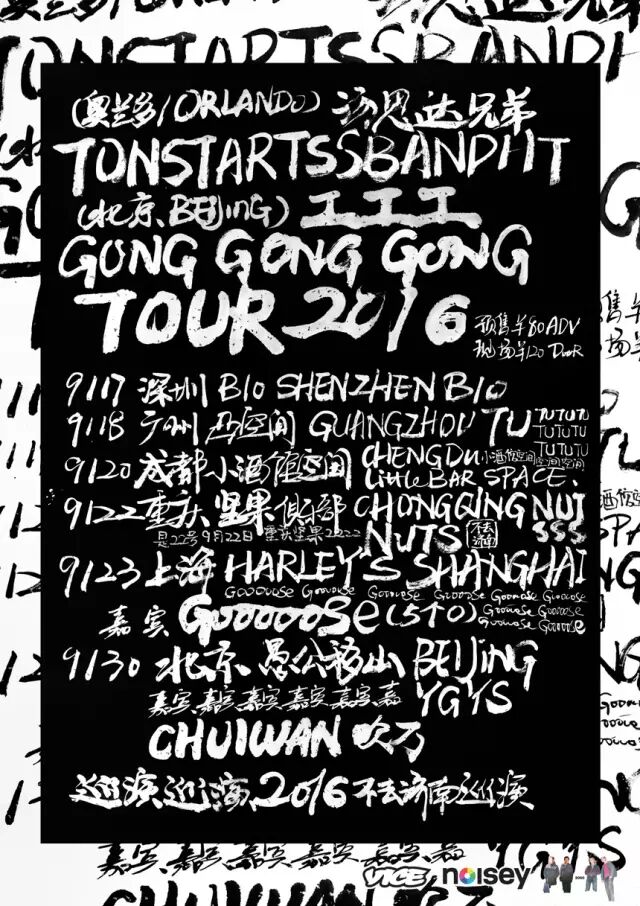 TONSTARTSSBANDHT
(奥兰多/ORLANDO) 汤思达兄弟
TONSTARTSSBANDHT
(北京、BEIJING) 工工工
GONG GONG GONG
TOUR 2016
预售¥80 ADV
现场¥120 DooR
9/17 深圳 B10 SHENZHEN B10
9/18 广州 凸空间 GUANGZHOU TU TUTUTU
TUTUTU
TUTUTU
9/20 成都小酒馆空间 CHENGDU 小酒馆空间
LittLE BAR SPACE. 空间空间
9/22 重庆 坚果俱乐部 CHONGQING NUT
是22号 9月22日 重庆坚果22222 NUTS 不去济南 SSS
9/23 上海 HARLEY'S SHANGHAI
Goooose Goooose Goooose Goooose Goooose
嘉宾 Goooooose (5个O) Goooose Goooose
Goooose Goooose
9/30 北京、愚公移山 BEIJING
嘉宾、嘉宾、嘉宾、嘉宾、嘉宾、嘉 YGYS
CHUIWAN 吹万
巡演巡演、2016 不去济南巡演
嘉宾、嘉宾、嘉宾、嘉宾、嘉宾、嘉 YGYS
VICE noisey
CHUIWAN 吹万